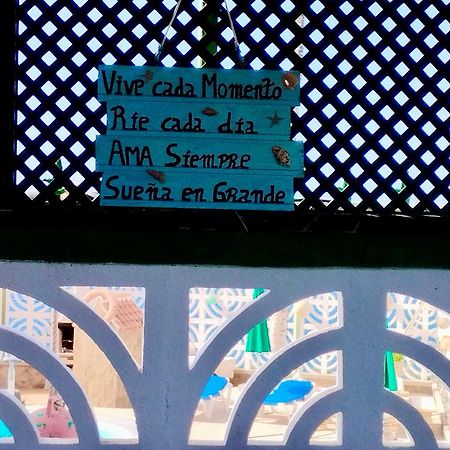 Vive cada Momento
Ríe cada día
AMA Siempre
Sueña en Grande